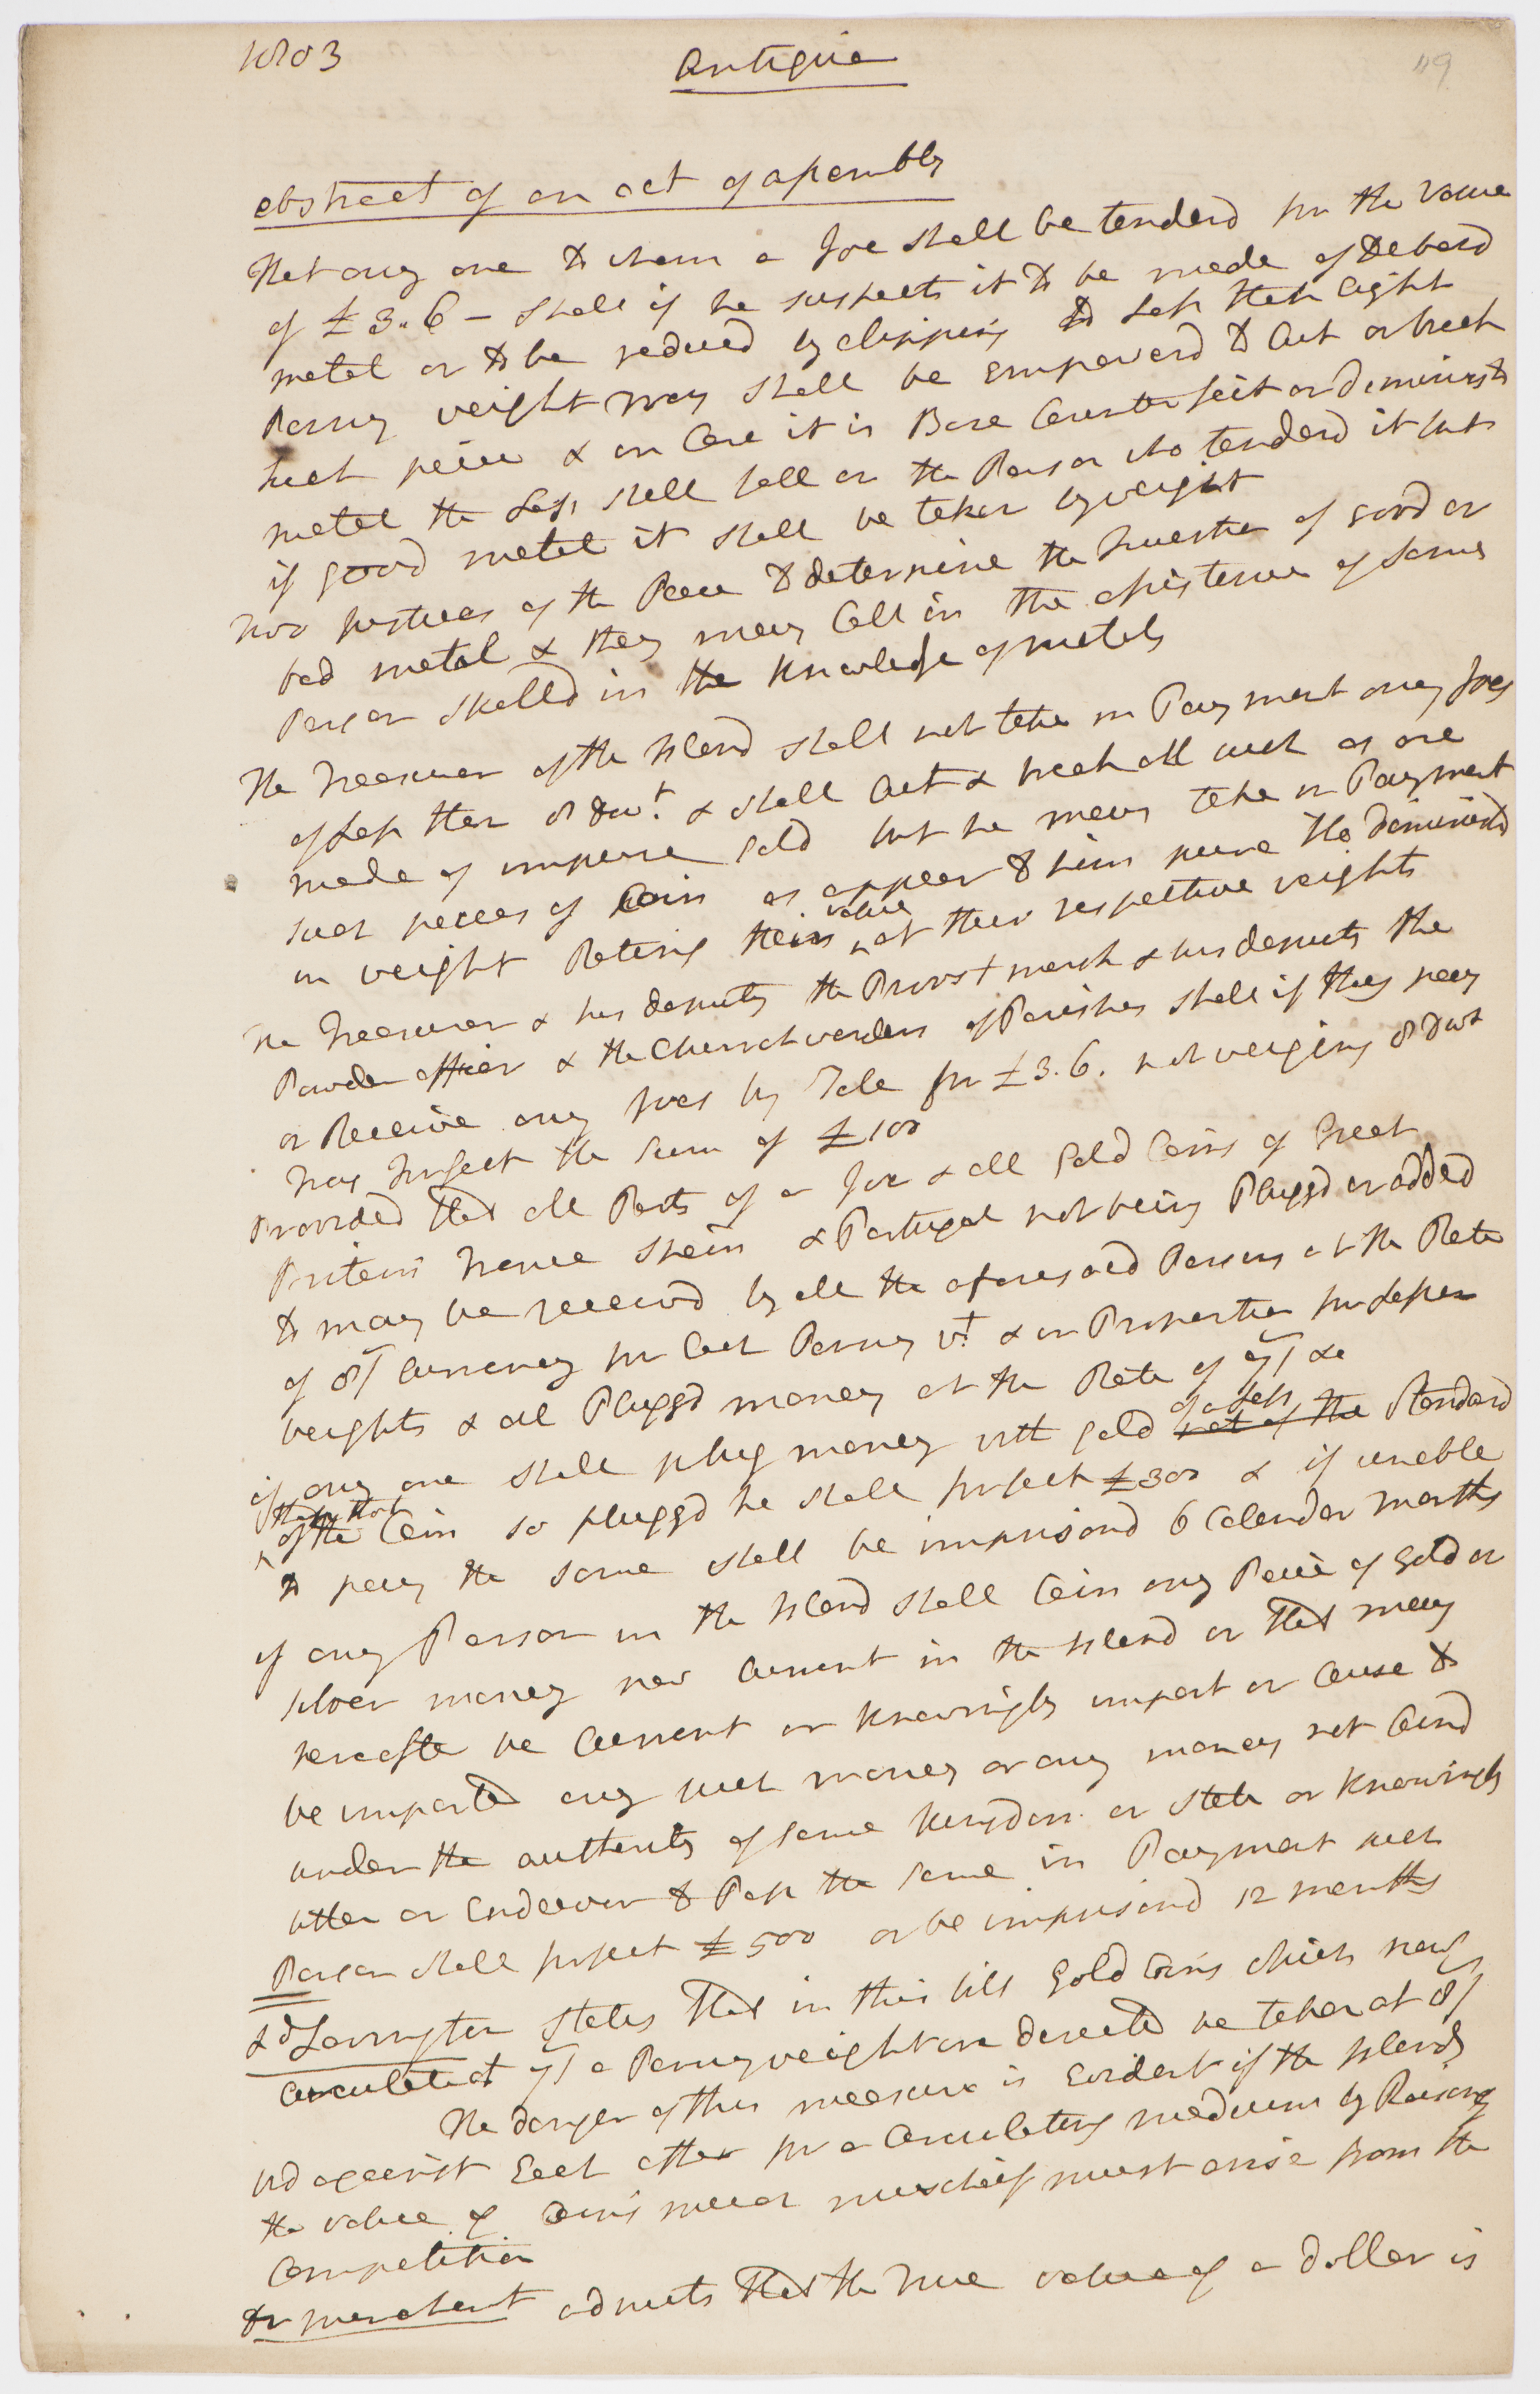 1803
Antigua
119
abstract of an act of assembly
That any one to whom a Joe shall be tenderd for the value
of £3.. 6 – shall if he suspects it to be made of debasd
metal or to be reducd by clipping to Less then Eight
Penny weight may shall be empowerd to Cut or break
such peice & in Case it is Base Counterfeit or diminishd
metal the Loss shall fall on the Person who tenderd it but
if good metal it shall be taken by weight
two justices of the Peace to determine the Question of good or
bad metal & they may Call in the assistance of some
Person skilld in the knowledge of metals
The Treasurer of the Island shall not take in Payment any Joes
of Less then 8 dwt. & shall Cut & break all such as are
made of impure gold but he may take in Payment
such peices of Coin as appear to him pure tho diminishd
in weight Rating their value at their respective weights
The Treasurer & his deputy the Provost marsh & his deputy the
Powder officer & the Churchwardens of Parishes shall if they pay
or Receive any Joes by Tale for £3. 6. not weighing 8 dwt
may forfeit the Sum of £100
Provided that all Parts of a Joe & all Gold Coins of Great
Britain France Spain & Portugal not being Pluggd or added
to may be receivd by all the aforesaid Persons at the Rate
of 8/ Currency for Each Penny wt. & in Proportion for Lesser
weights & all Pluggd money at the Rate of 7/ &c
if any one shall plug money with gold not of the of a Less Standard
than that of the Coin so pluggd he shall forfeit £300 & if unable
to pay the same shall be imprisond 6 Calendar months
if any Person in the Island shall Coin any Peice of Gold or
silver money now Current in the Island or that may
hereafter be Current or knowingly import or Cause to
be imported any such money or any money not Coind
under the authority of some kingdom or state or knowingly
utter or Endeavor to Pass the same in Payment such
Person shall forfeit £500 or be imprisond 12 months
Ld Lavington states that in this bill Gold Coins which now
Circulate at 7/ a Pennyweight are directed be taken at 8/
The danger of this measure is Evident if the Islands
bid against Each other for a Circulating medium by Raising
the value of Coins much mischeif must arise from the
Competition
the merchant admits that the true value of a dollar is